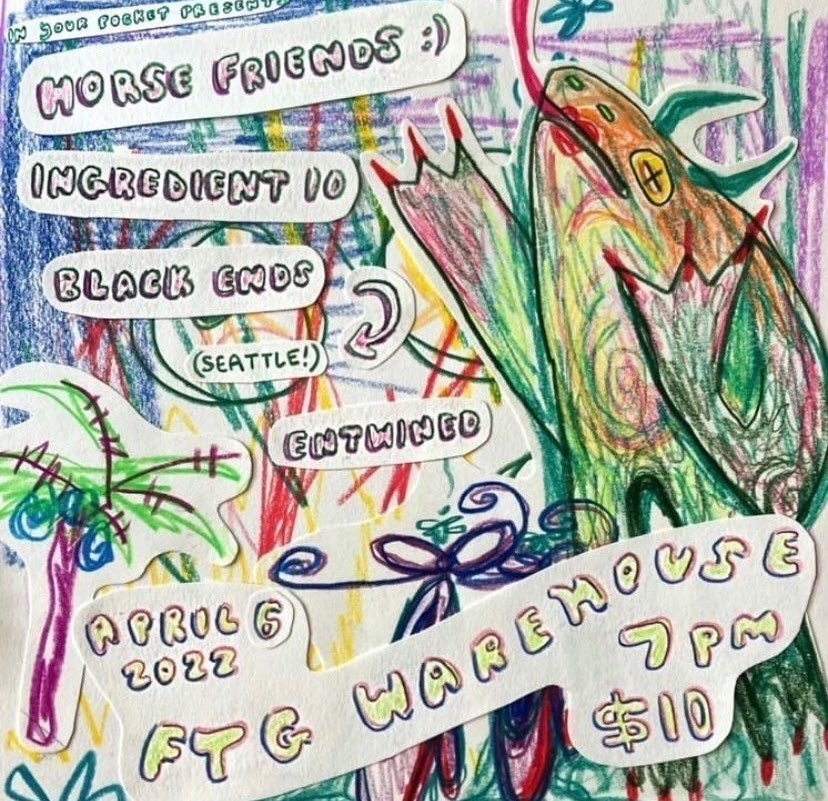 IN YOUR POCKET PRESENTS
HORSE FRIENDS :)
INGREDIENT 10
BLACK ENDS
(SEATTLE!)
ENTWINED
APRIL 6
2022
FTG WAREHOUSE
7PM
$10